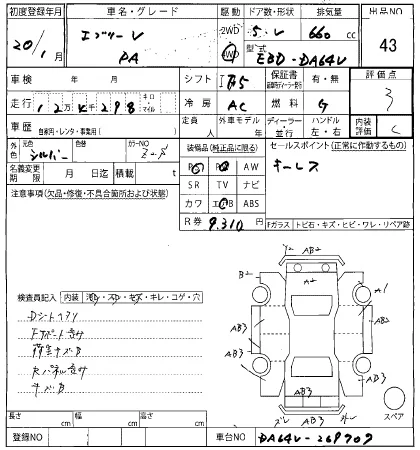 初度登録年月 車名・グレード 駆動 ドア数・形状 排気量 出品NO
20/1 エブリーV 2WD 5.V 660 cc 43
PA 4WD 型式 EBD-DA64V
車検 年 月 シフト 保証書 有・無 評価点
走行 12万4千298 キロ・マイル 冷房 AC 燃料 G 3
車歴 自家用・レンタ・事業用( ) 定員 人 外車モデル ディーラー・並行 ハンドル 左・右 内装評価 C
外色 元色 シルバー 色替 カラーNO Z2S 装備品(純正品に限る) セールスポイント(正常に作動するもの)
名義変更期限 月 日迄 積載 t PS PW AW キーレス
注意事項(欠品・修復・不具合箇所および状態) SR TV ナビ
カワ エAB ABS
R券 9.310 円 Fガラス トビ石・キズ・ヒビ・ワレ・リペア跡
Y2 AB2
B2 A2 A1
検査員記入 内装 汚レ・スレ・キズ・キレ・コゲ・穴
Dシート
AB3 AB3 AB2
荷室キズB
AB3 AB3
キズB
AB3
スペア
長さ cm 幅 cm 高さ cm
登録NO 車台NO DA64V-269709